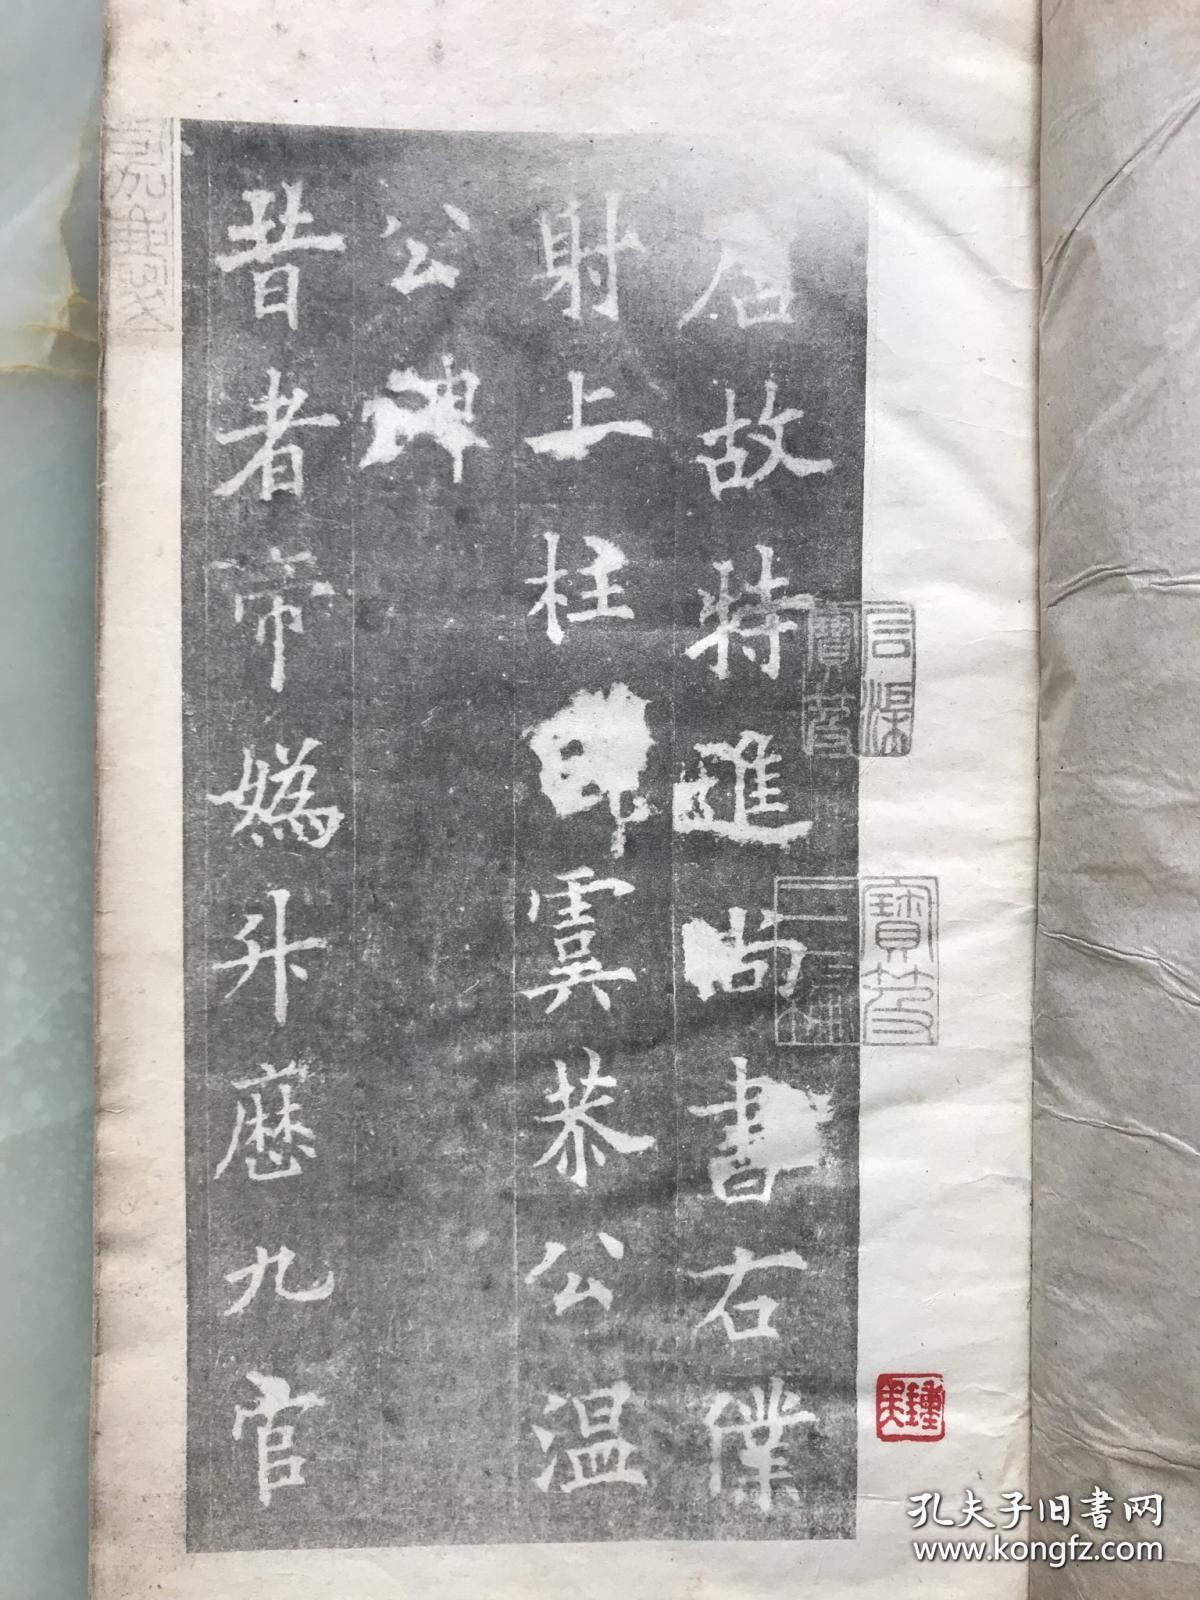 唐故特進尚書右僕
射上柱虞恭公温
公碑
昔者帝媯升歷九官
孔夫子旧书网
www.kongfz.com